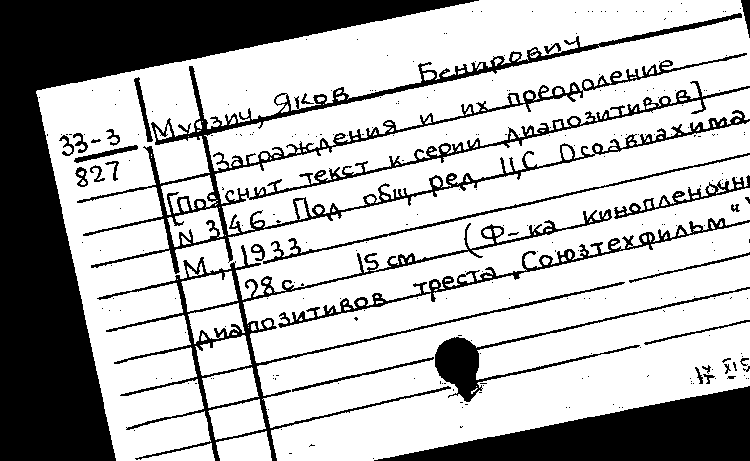 Мурзич, Яков Бенирович
33-3
827
Заграждения и их преодоление
[Пояснит текст к серии диапозитивов]
N 346. Под общ ред ЦС Осоавиахима
М., 1933.
28 с. 15 см. (Ф-ка кинопленочн
диапозитивов треста „Союзтехфильм"